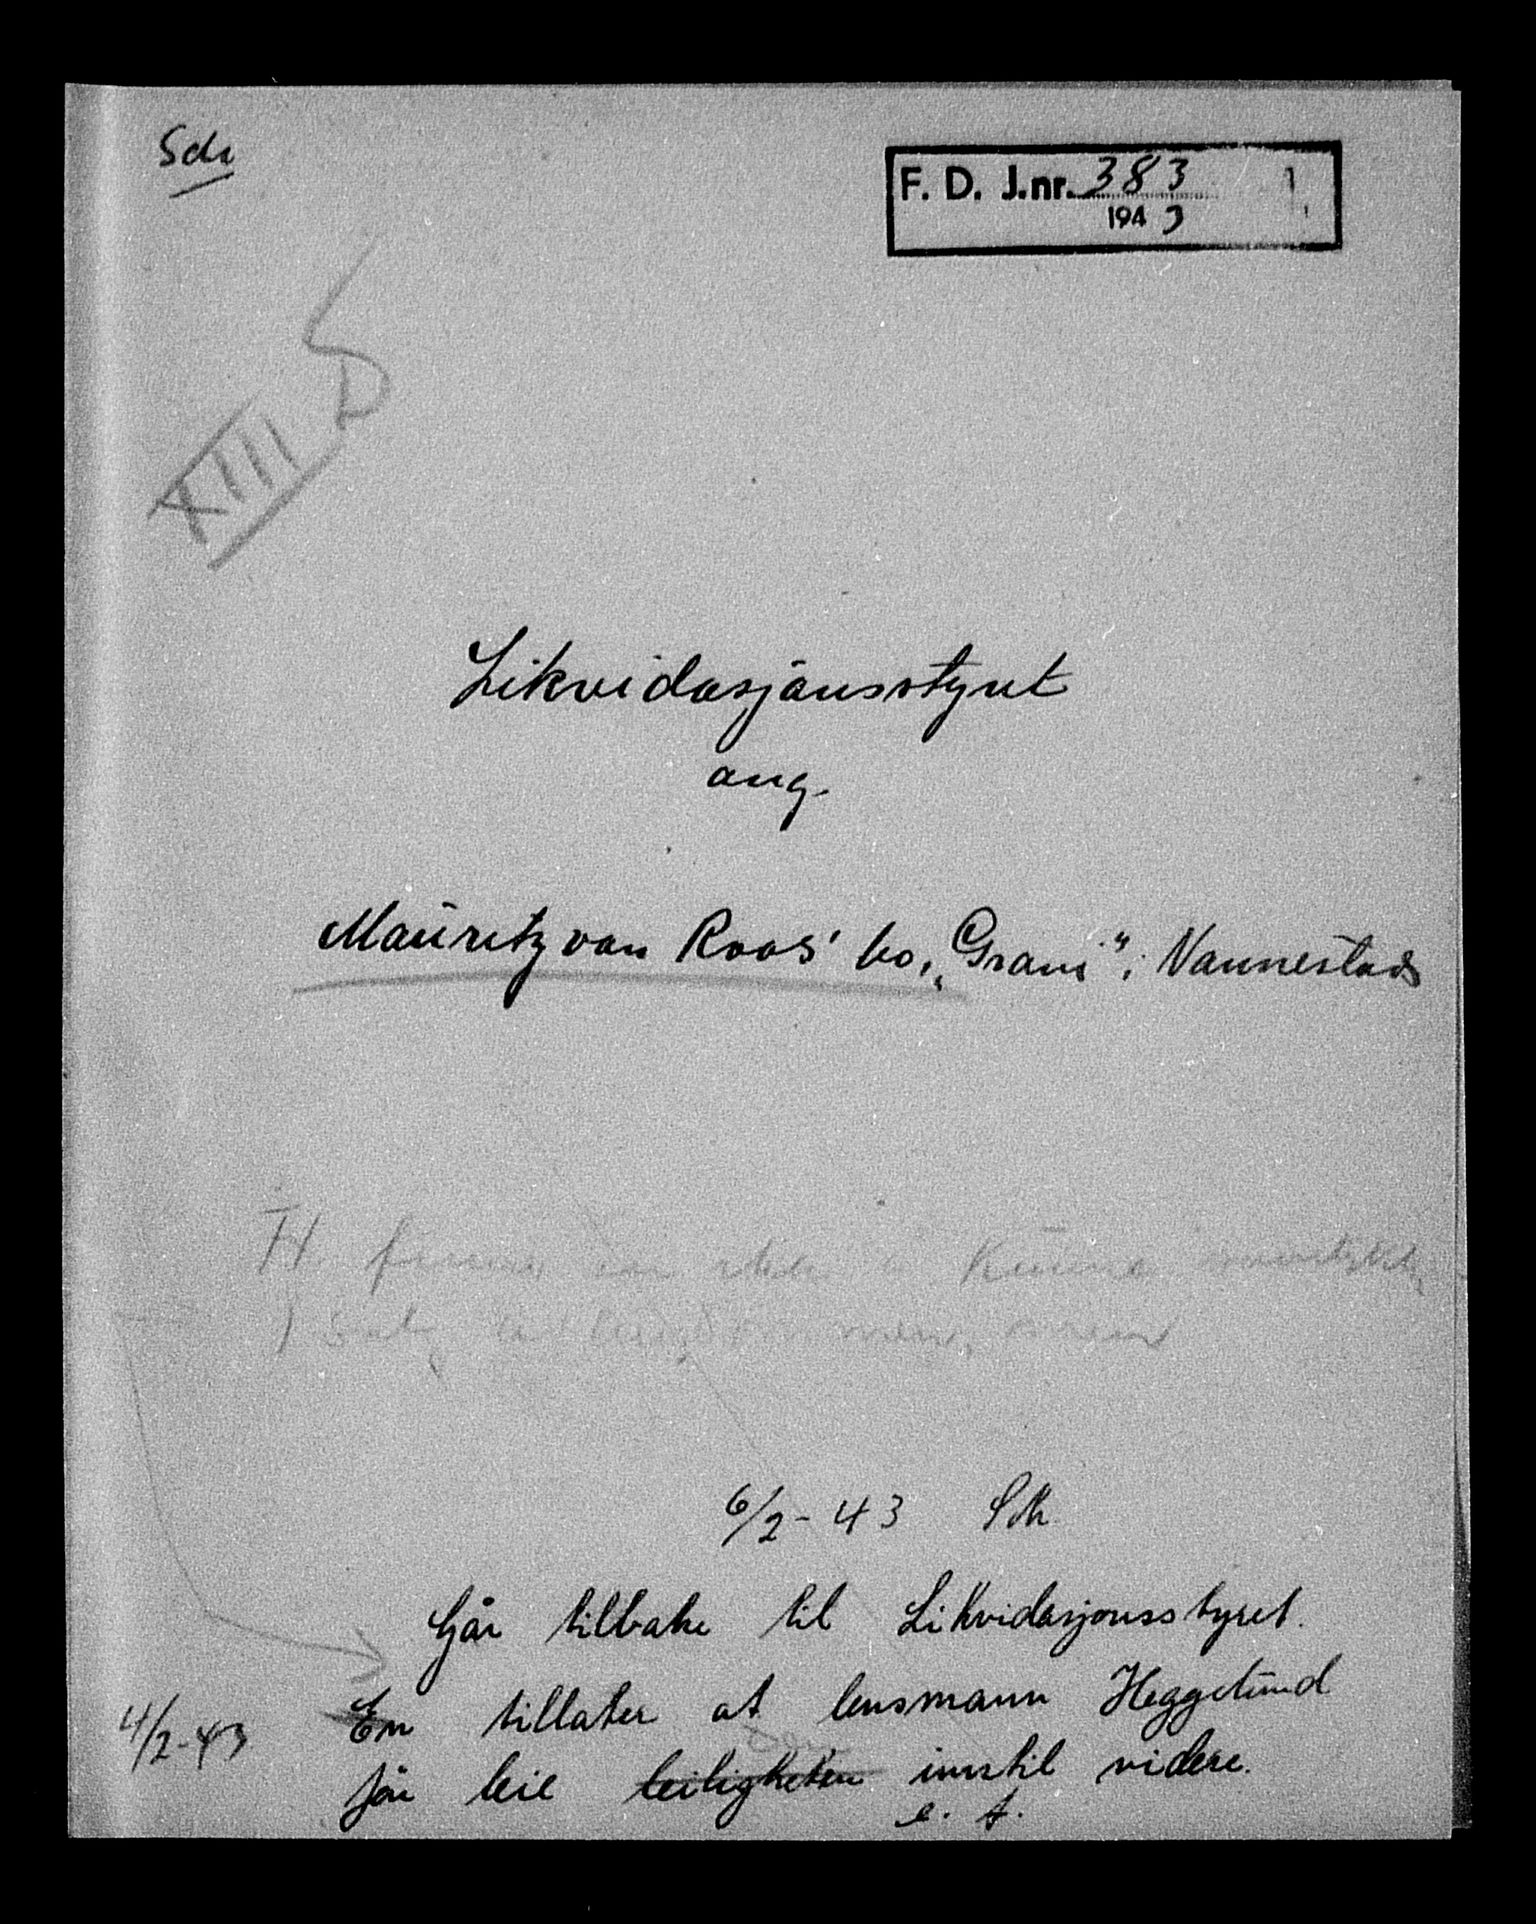 Sch
F. D. J.nr. 383
1943
XIII S
Likvidasjonsstyret
ang.
Mauritz van Roos' bo, „Grani" i Nannestad
H. finner
6/2-43 Sch
Går tilbake til Likvidasjonsstyret.
4/2-43 En tillater at lensmann Heggelund
får leie leiligheten den inntil videre.
e. f.